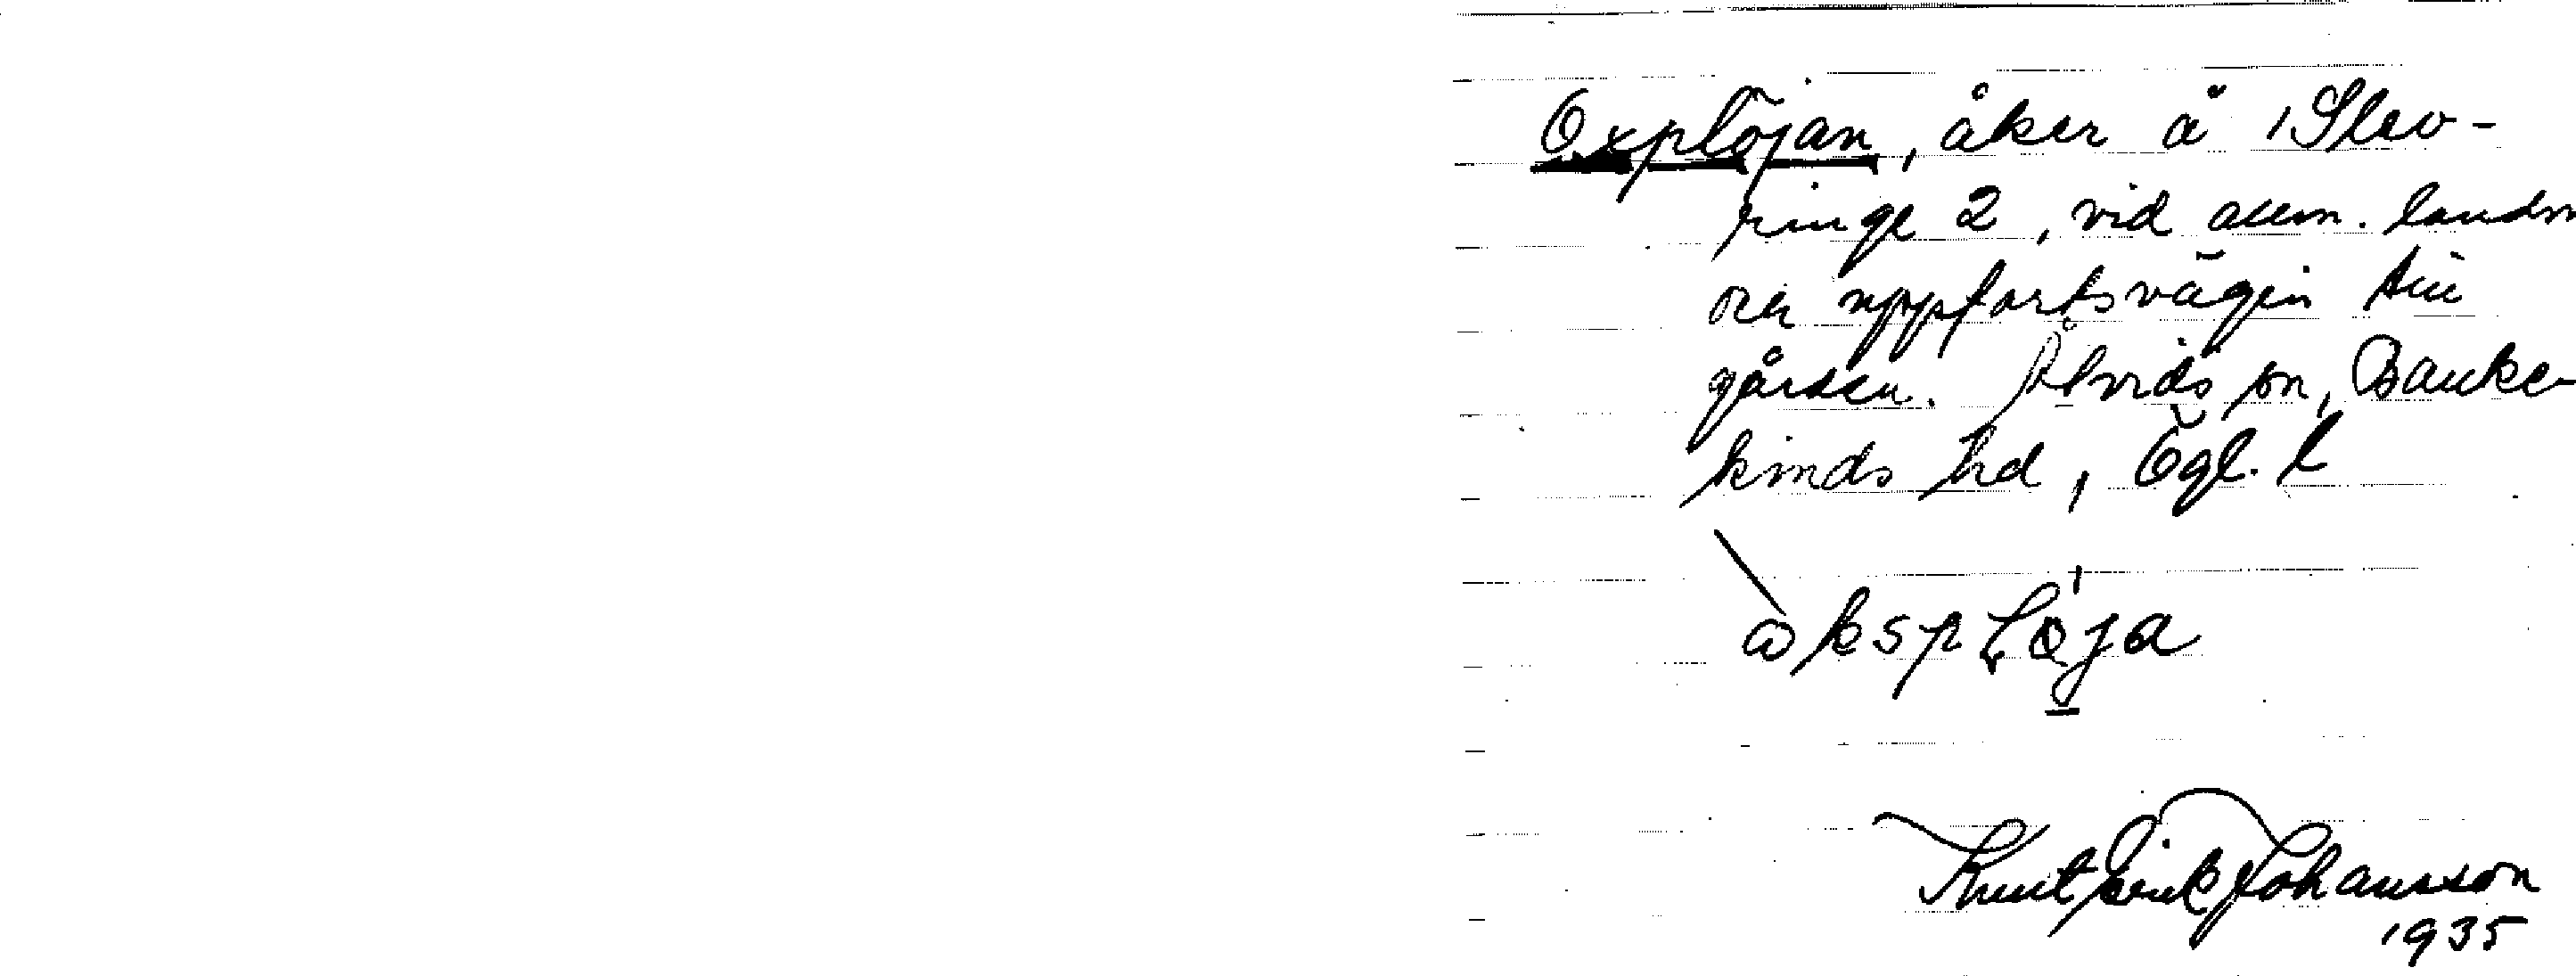 Oxplöjan, åker å Slev-
ringe 2, vid allm. landsv
och uppfartsvägen till
gården. Åtvids sn, Banke-
kinds hd, Ögl. l
Knut Erik Johansson
1935